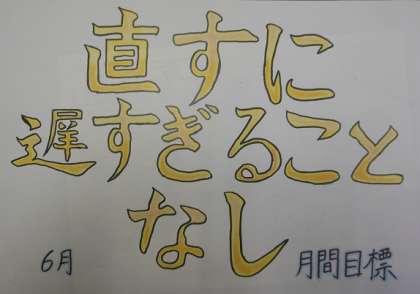 直すに
遅すぎること
なし
6月 月間目標